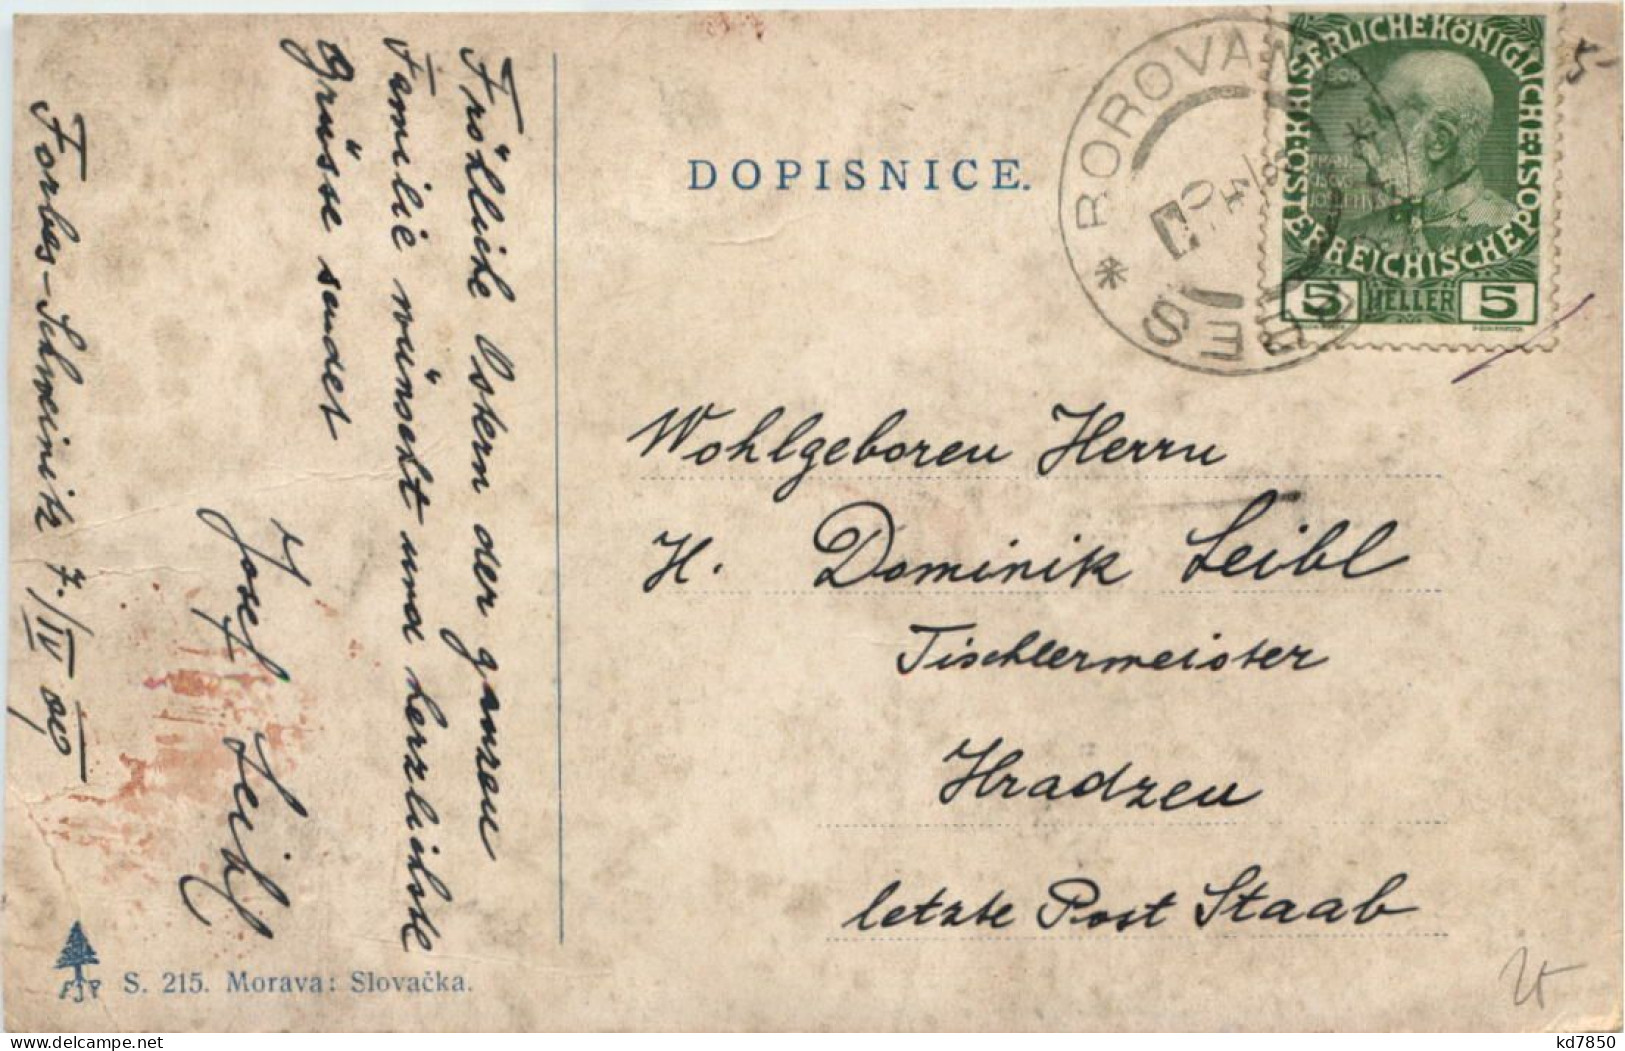 DOPISNICE.
Fröhliche Ostern der ganzen
Familie wünscht und herzlichste
Grüsse sendet
Josef Leibl
Forbes-Schweinitz 7./IV 09
* BOROVANY *
BES
KAISERLICHE KÖNIGLICHE
ÖSTERREICHISCHE POST
1908
5 HELLER 5
5
Wohlgeboren Herrn
H. Dominik Leibl
Tischlermeister
Hradzen
letzte Post Staab
FJP S. 215. Morava: Slovačka.
kd7850